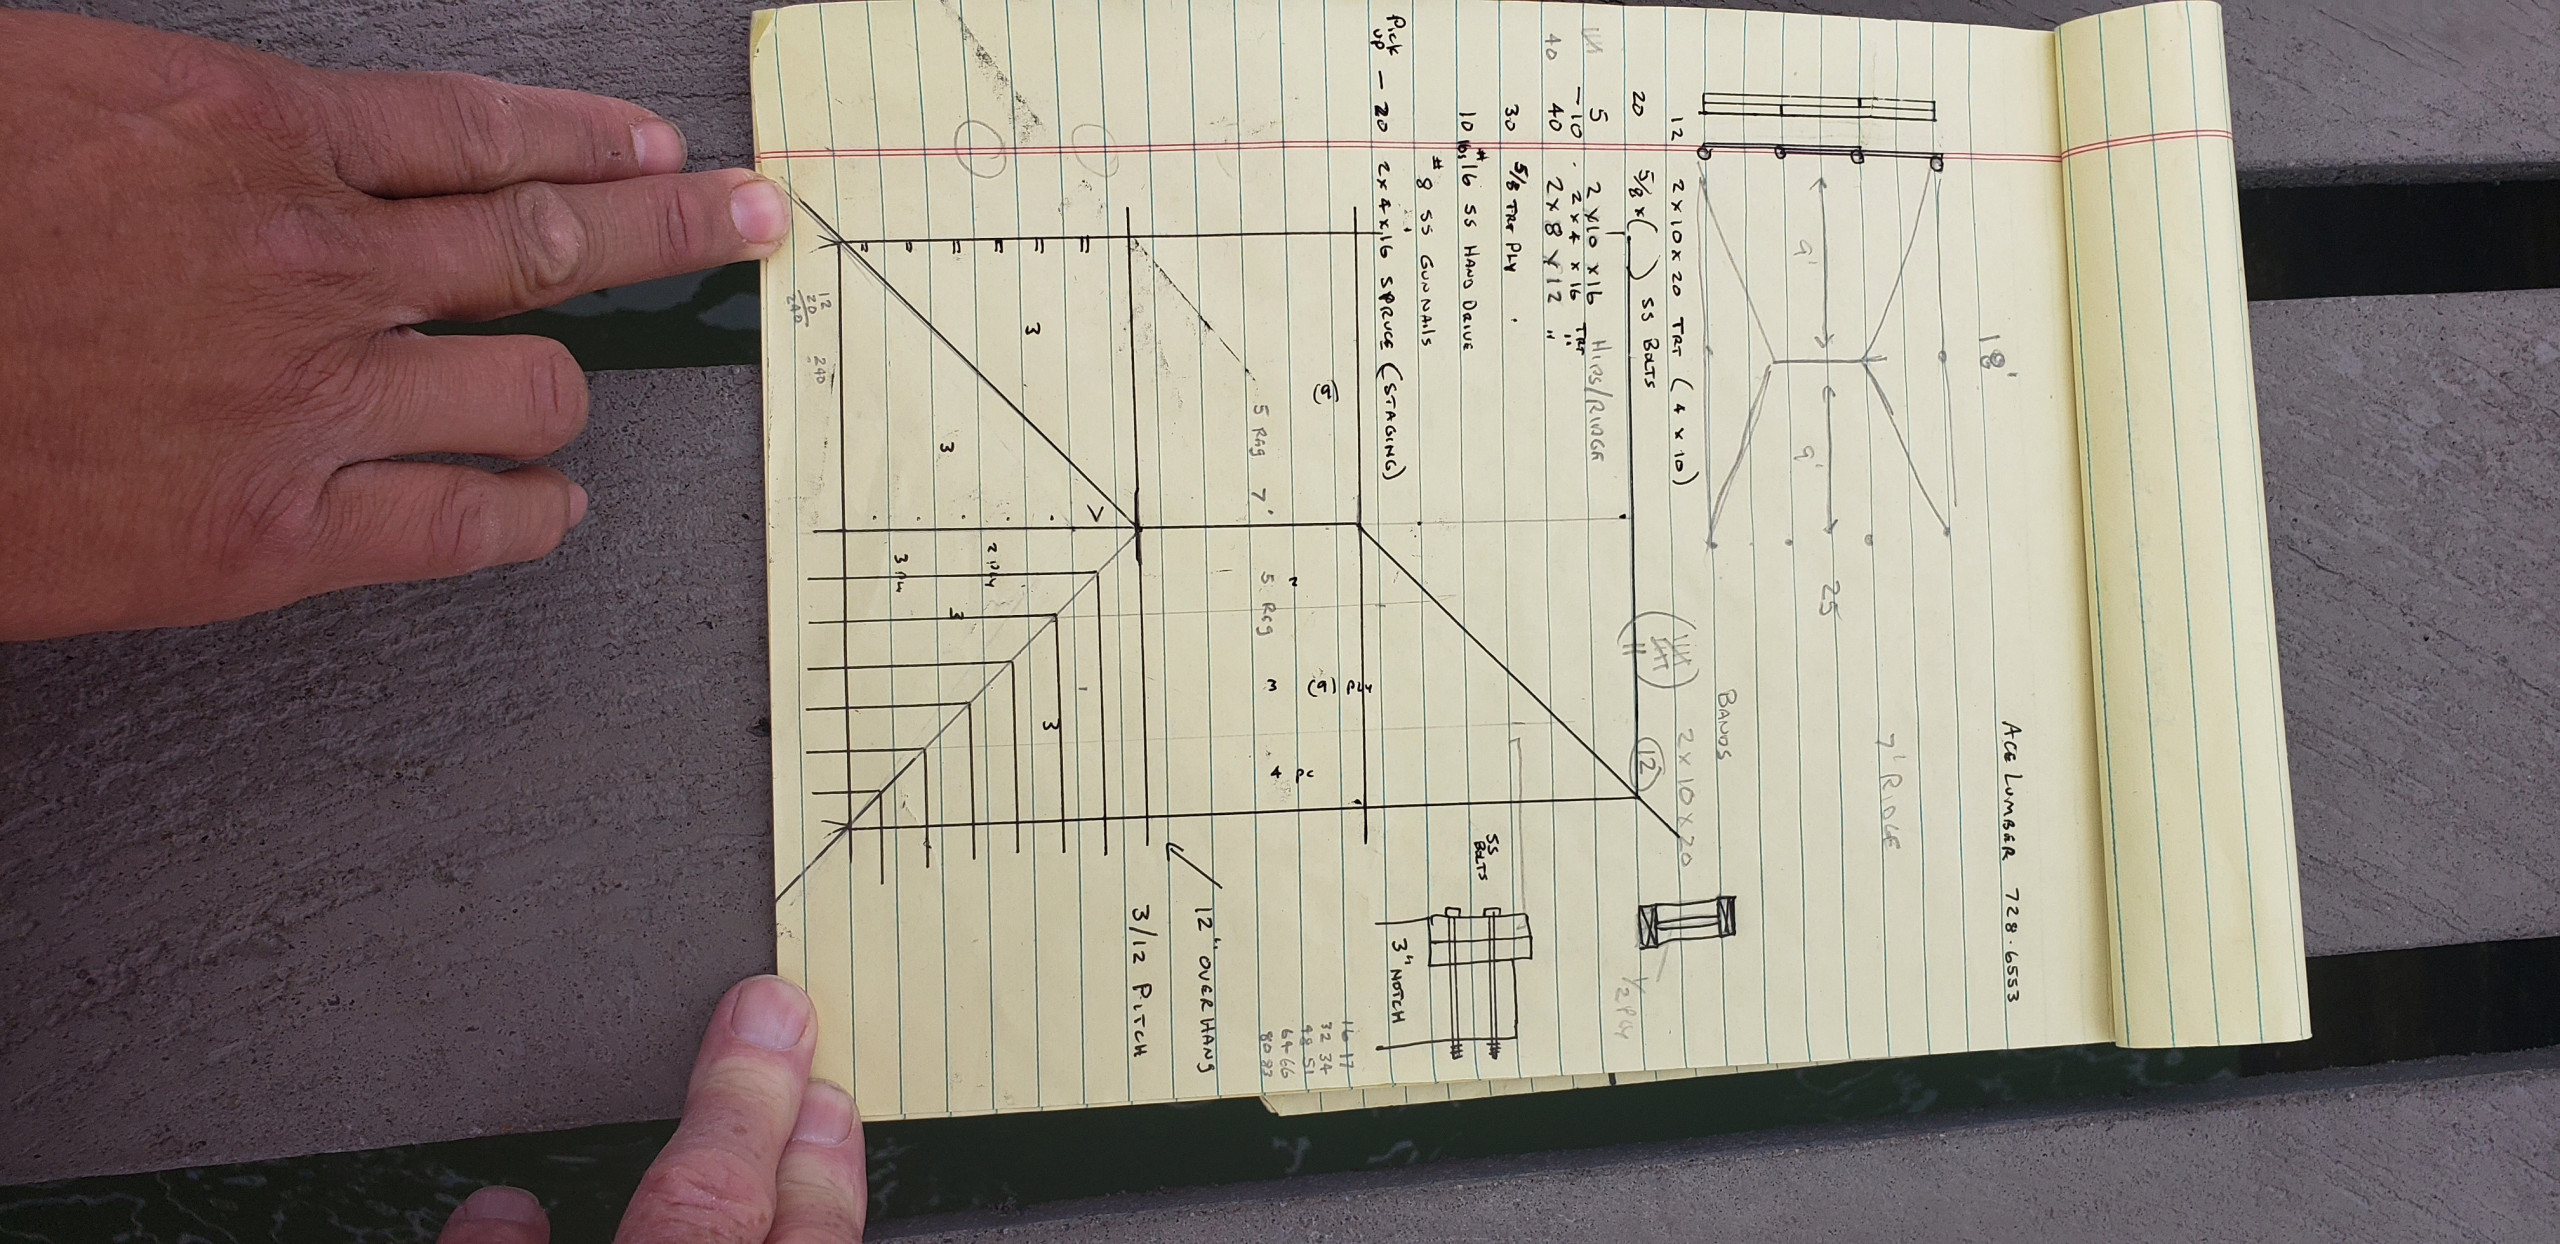 ACE LUMBER 728.6553
18'
7' RIDGE
9' 9' 25
BANDS
12 2x10x20 TRT (4x10)
2x10x20
20 5/8 x ( ) SS BOLTS
11
12
1/2 PLY
5 2x10x16 TRT HIPS/RIDGE
10 2x4x16 "
40 40 2x8x12 "
30 5/8 TRT PLY
10 lbs #16 SS HAND DRIVE
#8 SS GUN NAILS
Pick up - 20 2x4x16 SPRUCE (STAGING)
SS BOLTS
3" NOTCH
5 Reg 7' 5 Reg
3
4 pc
16 17
32 34
48 51
64-66
80 83
12" OVERHANG
3/12 PITCH
3
3
3
3
2 ply
12
20
240
240